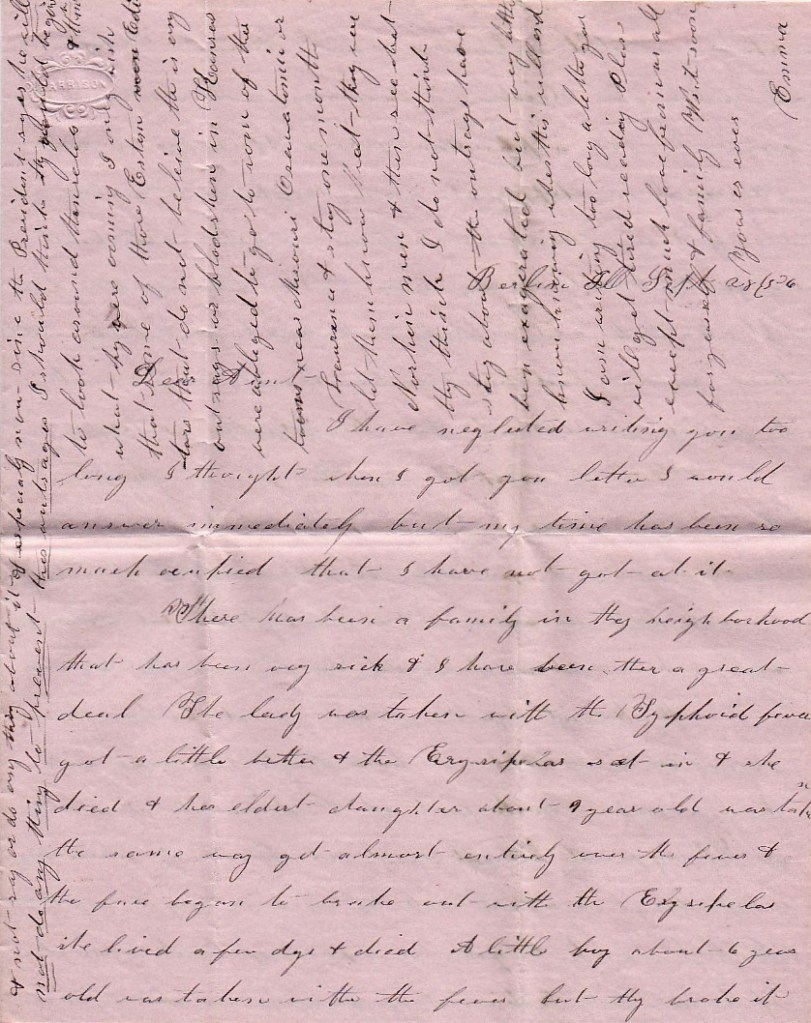 Berlin Ill Sept 28/56
Dear Aunt
I have neglected writing you too
long I thought when I got you letter I would
answer immediately but my time has been so
much ocupied that I have not got at it
There has been a family in they neighborhood
that has been very sick & I have been ther a great
deal The lady was taken with the Typhoid fever
got a little better & the Erysipelas set in & she
died & her eldest daughter about 9 year old was taken
the same way got almost entirely over the fever &
the face began to brake out with the Erysipelas
she lived a few dys & died A little boy about 6 years
old was taken with the fever but thy broke it
& not say or do any thing about it & espesialy now since the President says he will
not do any thing to prevent this outrages I should think thy should begin
to look around themselves &
what thy were coming I only wish
that some of those Eston Edi
tors that do not believe the is any
outrags or bloodshed in Kansas
were obliged to go to some of the
towns near Missouri Osawatomie or
Lawrence & stay one month &
let them know that they were
Northern men & then see what
thy think I do not think
the outrags have
ben exagerated but very little
when this will end
I am writing too long a letter you
will get tired reading Please
except much love from us all
for yourself & family Writ soon
Yours as ever
Emma
ARRISON